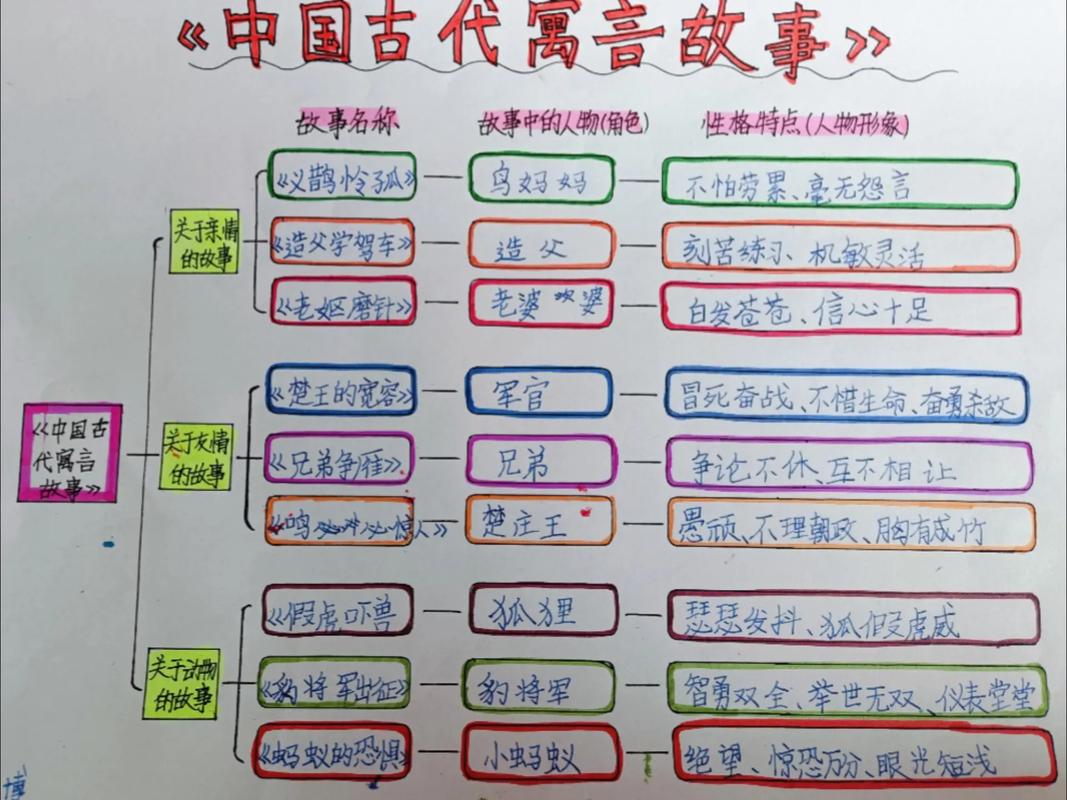 《中国古代寓言故事》
故事名称 故事中的人物(角色) 性格特点(人物形象)
《中国古
代寓言
故事》
关于亲情
的故事
《义鹊怜孤》 鸟妈妈 不怕劳累、毫无怨言
《造父学驾车》 造父 刻苦练习、机敏灵活
《老妪磨针》 老婆婆 白发苍苍、信心十足
关于友情
的故事
《楚王的宽容》 军官 冒死奋战、不惜生命、奋勇杀敌
《兄弟争雁》 兄弟 争论不休、互不相让
《鸣 惊人》 楚庄王 愚顽、不理朝政、胸有成竹
关于动物
的故事
《假虎吓兽 狐狸 瑟瑟发抖、狐假虎威
《豹将军出征》 豹将军 智勇双全、举世无双、仪表堂堂
《蚂蚁的恐惧》 小蚂蚁 绝望、惊恐万分、眼光短浅
博